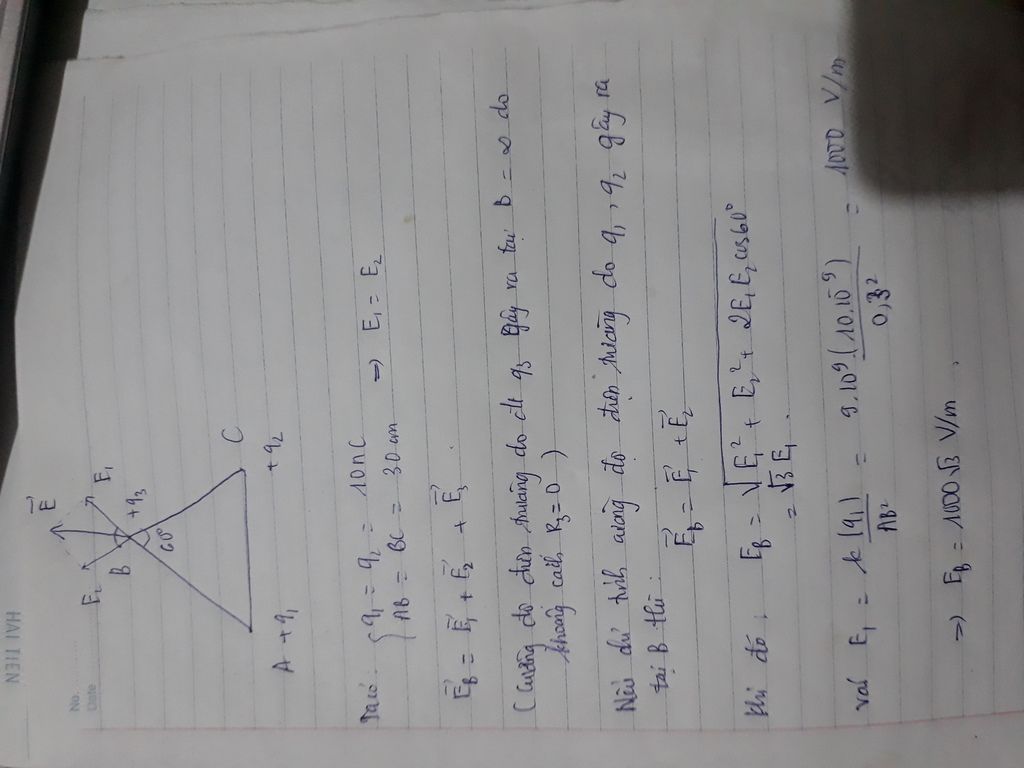 HẢI TIẾN
No.
Date
E⃗
E₂ E₁
B +q₃
60°
C
A +q₁ +q₂
Ta có: { q₁ = q₂ = 10nC
AB = BC = 30 cm => E₁ = E₂
E⃗_B = E⃗₁ + E⃗₂ + E⃗₃.
(Cường độ điện trường do đt q₃ gây ra tại B = ∞ do
khoảng cách R₃ = 0)
Nếu chỉ tính cường độ điện trường do q₁, q₂ gây ra
tại B thì:
E⃗_B = E⃗₁ + E⃗₂
Khi đó: E_B = √(E₁² + E₂² + 2E₁E₂cos60°)
= √3 E₁.
với E₁ = k|q₁|/AB² = 9.10⁹.(10.10⁻⁹)/0,3² = 1000 V/m
=> E_B = 1000√3 V/m.